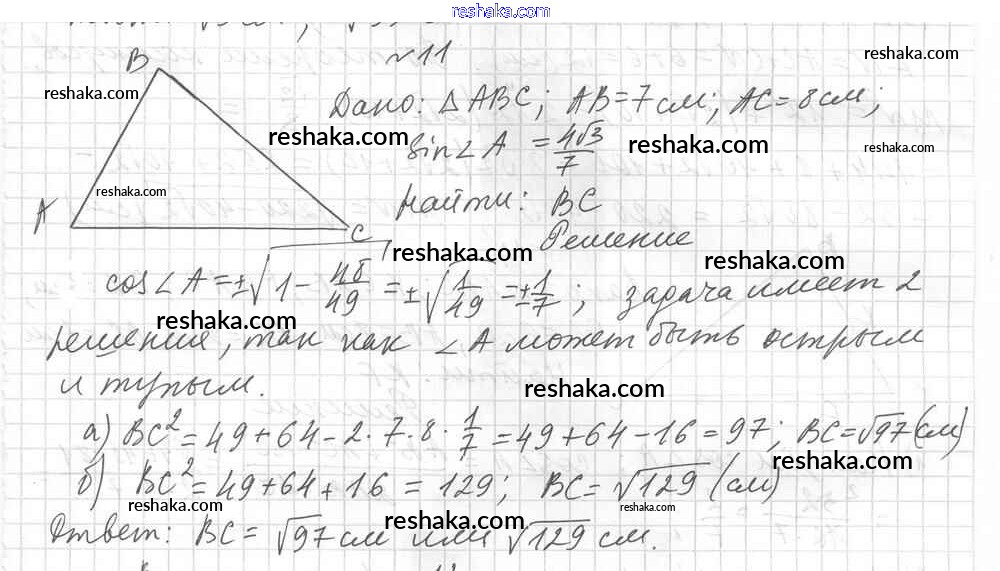 reshaka.com
№11
B
reshaka.com
reshaka.com
Дано: △ABC; AB=7см; AC=8см;
reshaka.com
reshaka.com
sin∠A = 4√3/7
reshaka.com
reshaka.com
Найти: BC
A
C
Решение
reshaka.com
reshaka.com
cos∠A=±√1-48/49=±√1/49=±1/7; задача имеет 2
reshaka.com
решения, так как ∠A может быть острым
и тупым.
reshaka.com
а) BC²=49+64-2·7·8·1/7=49+64-16=97; BC=√97(см)
reshaka.com
б) BC²=49+64+16=129; BC=√129(см)
reshaka.com
reshaka.com
reshaka.com
Ответ: BC=√97см или √129см.